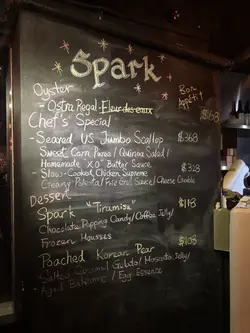 Spark
Oyster
- Ostra Regal - Fleur des eaux
Bon
Appétit
$168
Chef's Special
- Seared US Jumbo Scallop $368
Sweet Corn Puree / Salad /
Homemade XO Butter Sauce
- Slow-Cooked Chicken Supreme $328
Creamy Polenta / Foie Gras Sauce / Cheese Crumble
Dessert
Spark "Tiramisu" $118
Chocolate Popping Candy / Coffee Jelly /
Frozen Mousses
Poached Korean Pear $108
Salted Caramel Gelato / Moscato Jelly /
- Aged Balsamic / Egg Essence